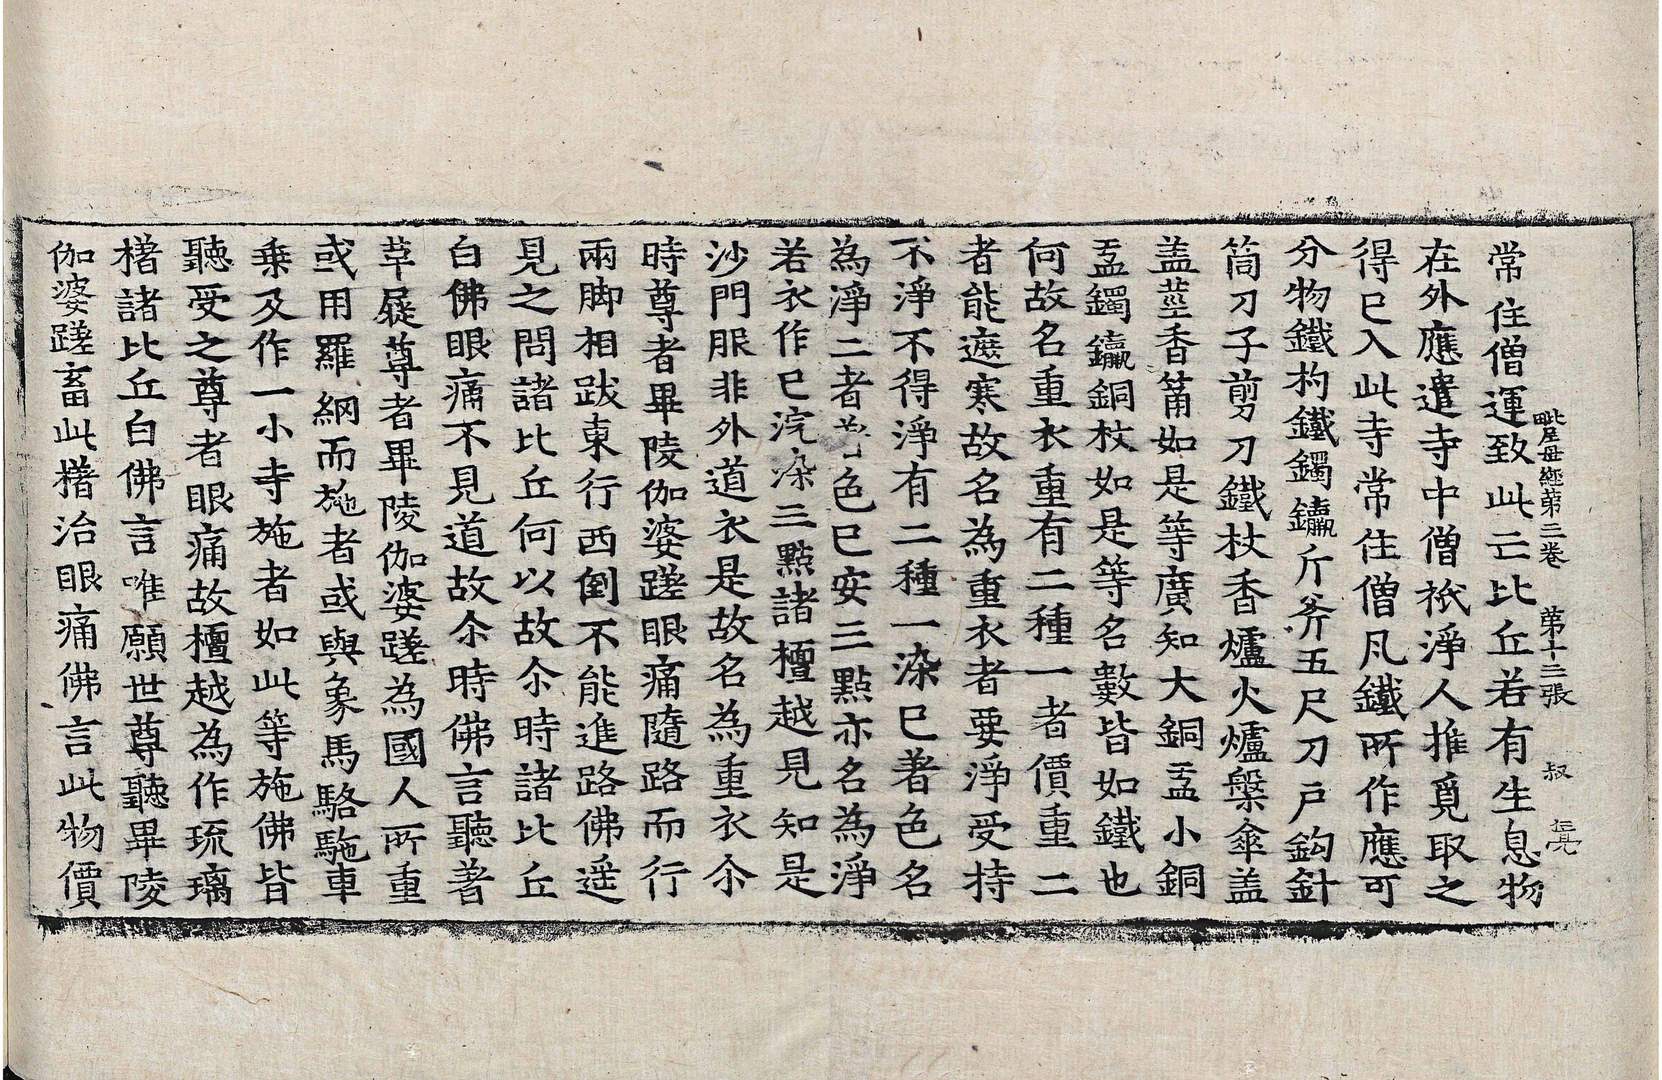 毗尼母經第三卷　第十三張　叔
常住僧運致此亡比丘若有生息物
在外應遣寺中僧祇淨人推覓取之
得已入此寺常住僧凡鐵所作應可
分物鐵杓鐵鐲鑷斤斧五尺刀戶鉤針
筒刀子剪刀鐵杖香爐火爐槃傘蓋
盖莖香筩如是等廣知大銅盂小銅
盂鐲鑷銅杖如是等名數皆如鐵也
何故名重衣重有二種一者價重二
者能遮寒故名為重衣者要淨受持
不淨不得淨有二種一染已著色名
為淨二者色已安三點亦名為淨
若衣作已浣染三點諸檀越見知是
沙門服非外道衣是故名為重衣尒
時尊者畢陵伽婆蹉眼痛隨路而行
兩脚相跋東行西倒不能進路佛遥
見之問諸比丘何以故尒時諸比丘
白佛眼痛不見道故尒時佛言聽著
草屣尊者畢陵伽婆蹉為國人所重
或用羅網而施者或與象馬駱駞車
乗及作一小寺施者如此等施佛皆
聽受之尊者眼痛故檀越為作琉璃
櫡諸比丘白佛言唯願世尊聽畢陵
伽婆蹉畜此櫡治眼痛佛言此物價